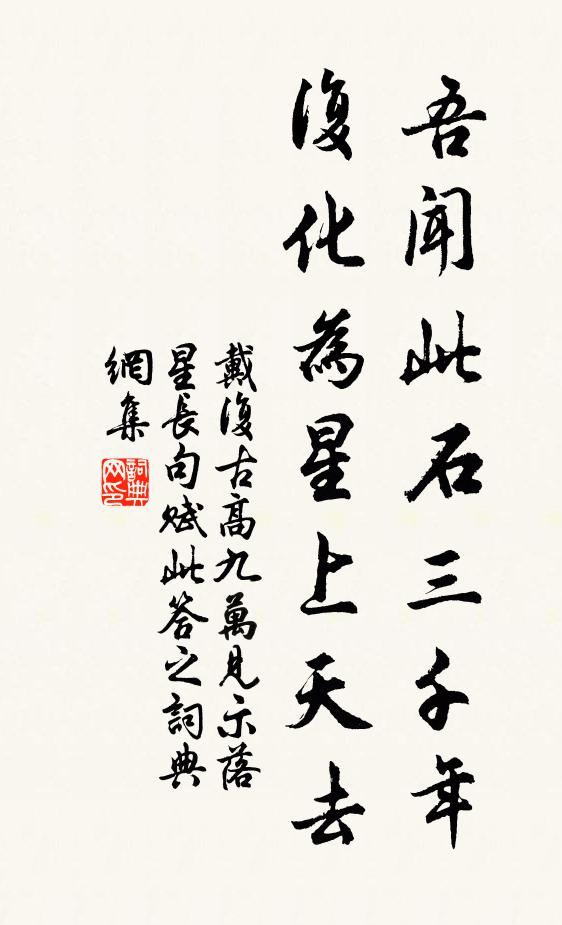 吾聞此石三千年
復化為星上天去
戴復古高九萬見示落
星長句賦此答之詞典
網集
詞典
网印